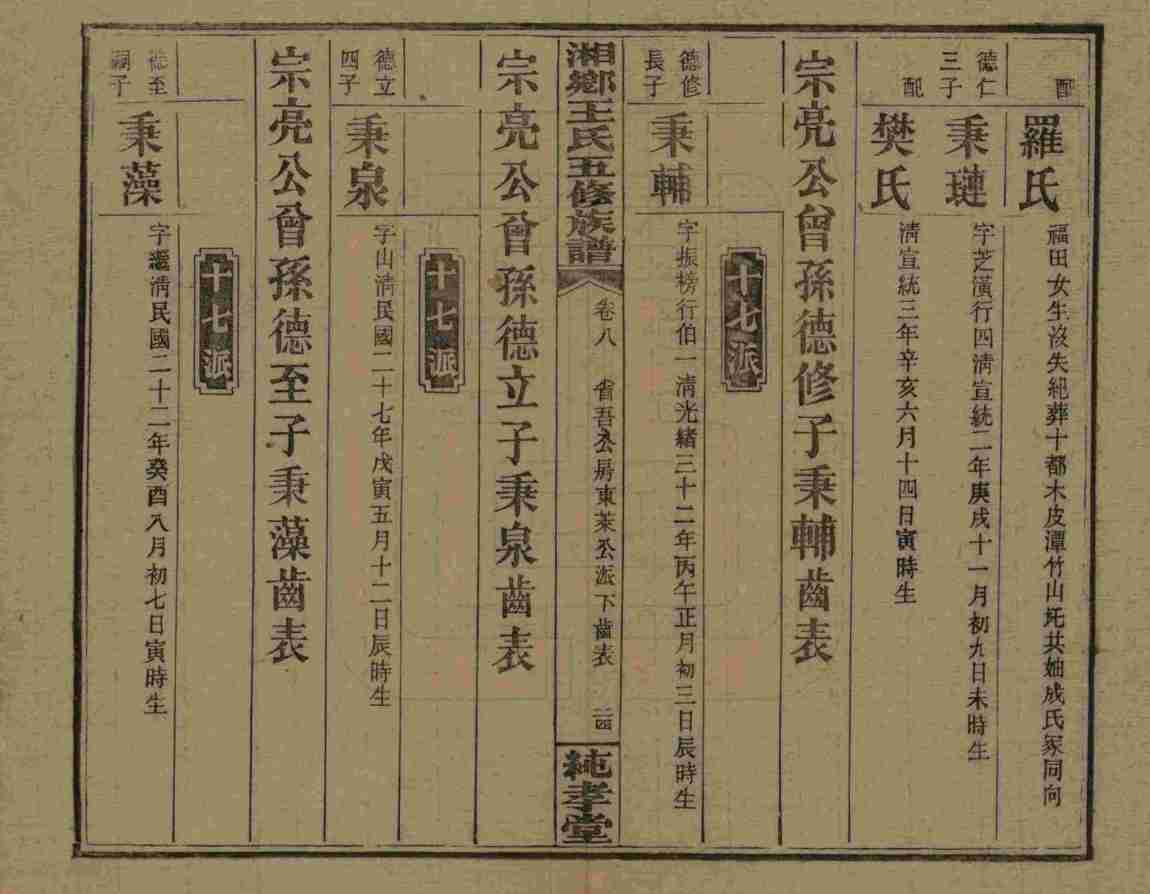 配
羅氏
福田女生沒失紀葬十都木皮潭竹山圫共妯成氏冢同向
德仁
三子
秉璉
字芝漢行四清宣統二年庚戌十一月初九日未時生
配
樊氏
清宣統三年辛亥六月十四日寅時生
宗亮公曾孫德修子秉輔齒表
十七派
德修
長子
秉輔
字振榜行伯一清光緒三十二年丙午正月初三日辰時生
湘鄉王氏五修族譜
卷八 省吾公房東萊公派下齒表 二四
純孝堂
宗亮公曾孫德立子秉泉齒表
十七派
德立
四子
秉泉
字山清民國二十七年戊寅五月十二日辰時生
宗亮公曾孫德至子秉藻齒表
十七派
德至
嗣子
秉藻
字繼清民國二十二年癸酉八月初七日寅時生